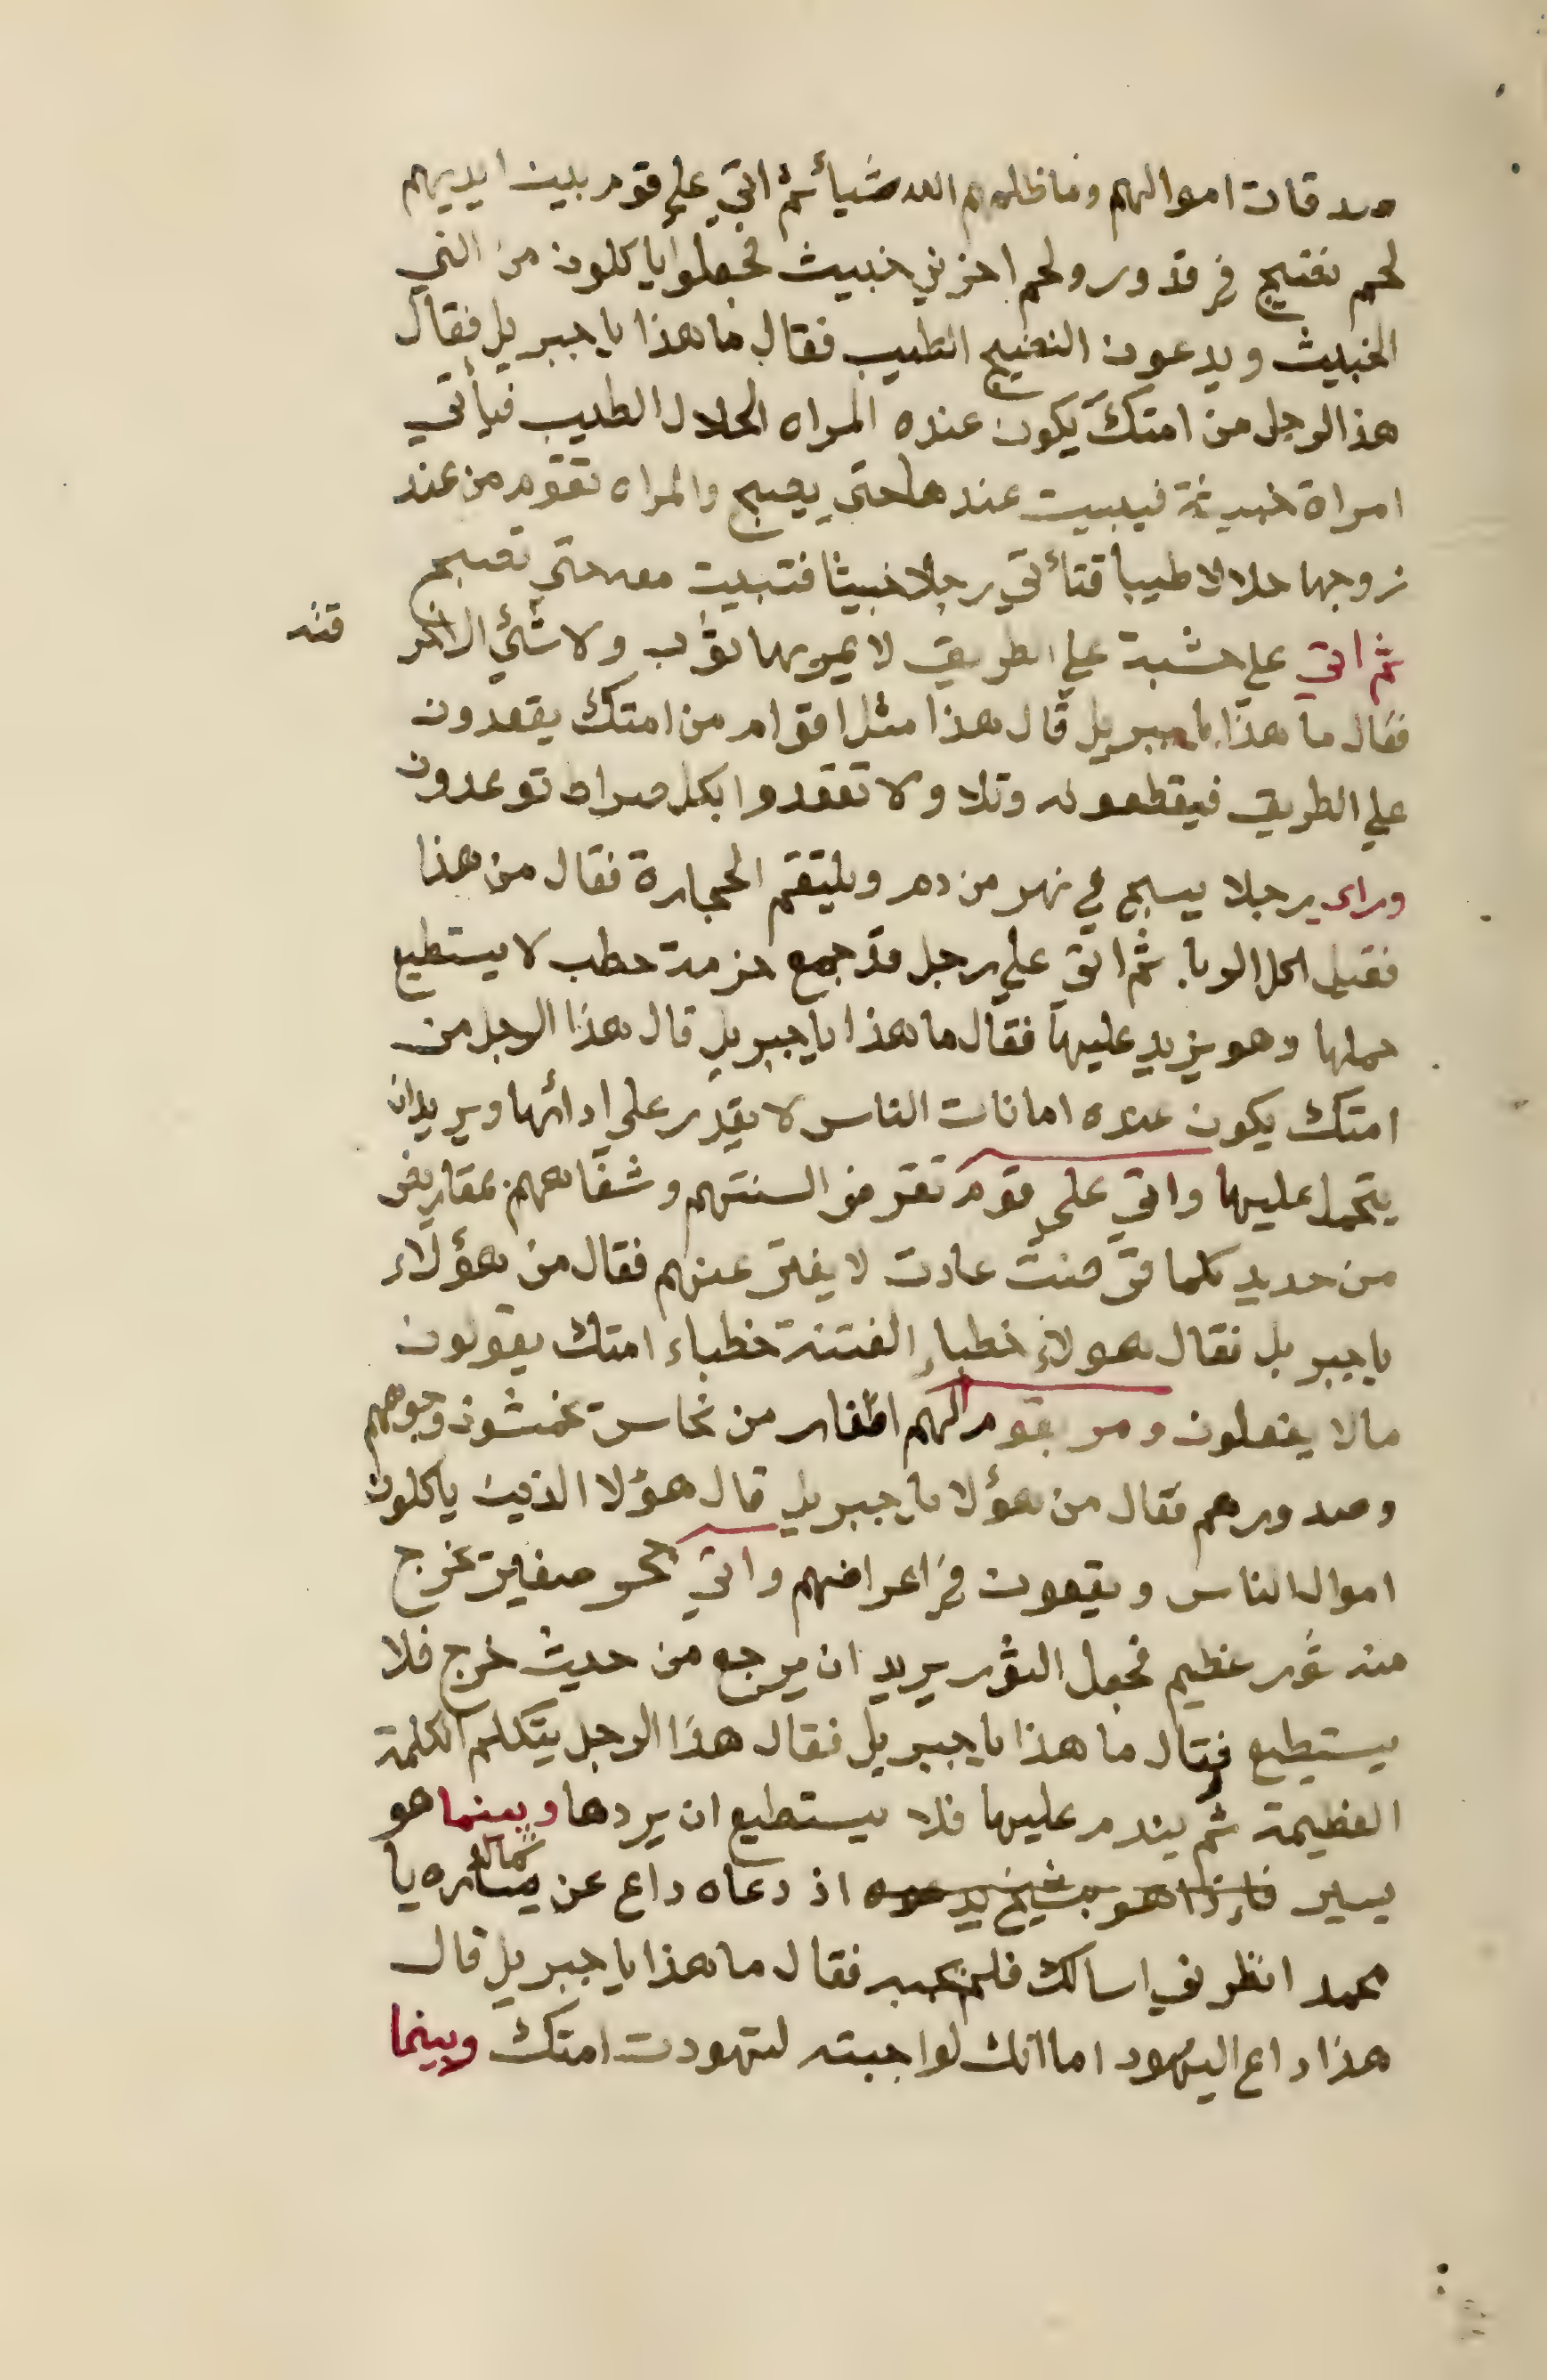 صدقات اموالهم وما ظلمهم الله شيأ ثم اتي علي قوم بين ايديهم
لحم نضيج في قدور ولحم اخر ني خبيث فجعلوا ياكلون من الني
الخبيث ويدعون النضيج الطيب فقال ما هذا يا جبريل فقال
هذا الرجل من امتك يكون عنده المراه الحلال الطيب فيأتي
امراة خبيثة فيبيت عندها حتي يصبح والمراه تقوم من عند
زوجها حلالا طيبا فتأتي رجلا خبيثا فتبيت معه حتي تصبح
ثم اتي علي خشبة علي الطريق لا يمر بها ثوب ولا شئ الا خر
قته
فقال ما هذا يا جبريل قال هذا مثل اقوام من امتك يقعدون
علي الطريق فيقطعونه وتلا ولا تقعدوا بكل صراط توعدون
وراء رجلا يسبح في نهر من دم ويلتقم الحجارة فقال من هذا
فقيل اكل الربا ثم اتي علي رجل قد جمع حزمة حطب لا يستطيع
حملها وهو يزيد عليها فقال ما هذا يا جبريل قال هذا الرجل من
امتك يكون عنده امانات الناس لا يقدر علي ادائها ويريد ان
يتحمل عليها واتي علي قوم تقرض السنتهم وشفاههم بمقاريض
من حديد كلما قرضت عادت لا يفتر عنهم فقال من هؤلاء
يا جبريل فقال هولاء خطباء الفتنة خطباء امتك يقولون
مالا يفعلون ومر بقوم لهم اظفار من نحاس يخمشون وجوههم
وصدورهم فقال من هؤلا يا جبريل قال هؤلا الذين ياكلون
اموال الناس ويقعون في اعراضهم واتي جحر صغير يخرج
منه ثور عظيم فجعل الثور يريد ان يرجع من حيث خرج فلا
يستطيع فقال ما هذا يا جبريل فقال هذا الرجل يتكلم الكلمة
العظيمة ثم يندم عليها فلا يستطيع ان يردها وبينما هو
يسير فاذا هو بشيخ يدعوه اذ دعاه داع عن يساره شماله يا
محمد انظرني اسالك فلم يجبه فقال ما هذا يا جبريل قال
هذا داع اليهود اما انك لو اجبته لتهودت امتك وبينما